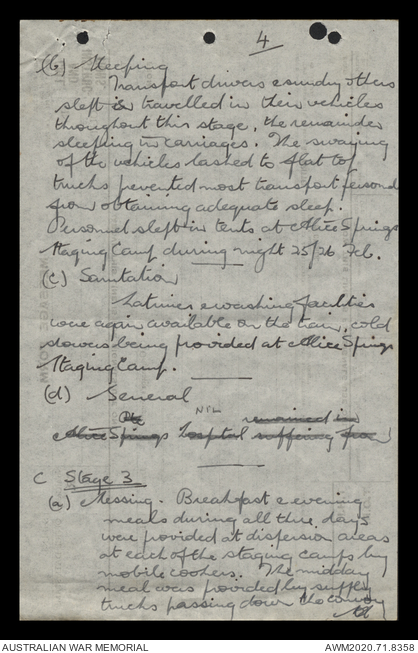 4
(b) Sleeping
Transport drivers & sundry others
slept & travelled in their vehicles
throughout this stage, the remainder
sleeping in carriages. The swaying
of the vehicles lashed to flat top
trucks prevented most transport personnel
from obtaining adequate sleep.
Personnel slept in tents at Alice Springs
Staging Camp during night 25/26 Feb.
(c) Sanitation
Latrines & washing facilities
were again available on the train, cold
showers being provided at Alice Springs
Staging Camp.
(d) General
Pte NIL remained in
Alice Springs hospital suffering from
C Stage 3
(a) Messing. Breakfast & evening
meals during all three days
were provided at dispersion areas
at each of the staging camps by
mobile cookers. The midday
meal was provided by supply
trucks passing down the convoy
AUSTRALIAN WAR MEMORIAL
AWM2020.71.8358